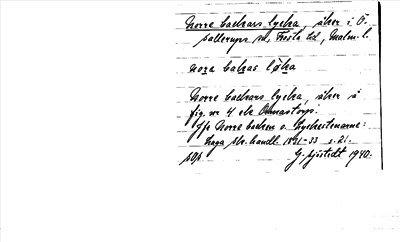 Norre backars lycka, åker i Ö.
Sallerups sn, Frosta hd, Malm. l.
nora bakas løka
Norre backars lycka, åker å
fig. nr 4 el. Osmarstorp.
Jfr Norre backen o. Lyckestenarne:
laga sk. handl. 1831-33 s. 21.
G. Sjöstedt 1940.